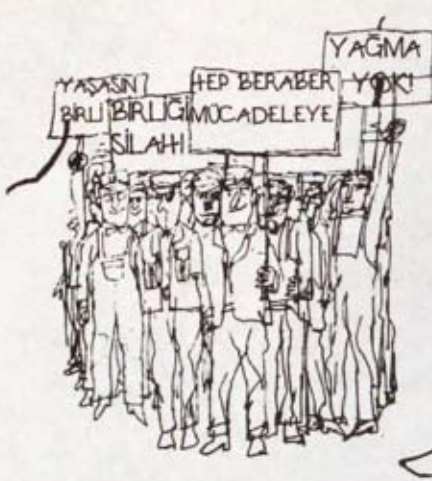 YAŞASIN
BİRLİ
BİRLİĞİ
SİLAHI
HEP BERABER
MÜCADELEYE
YAĞMA
YOK!